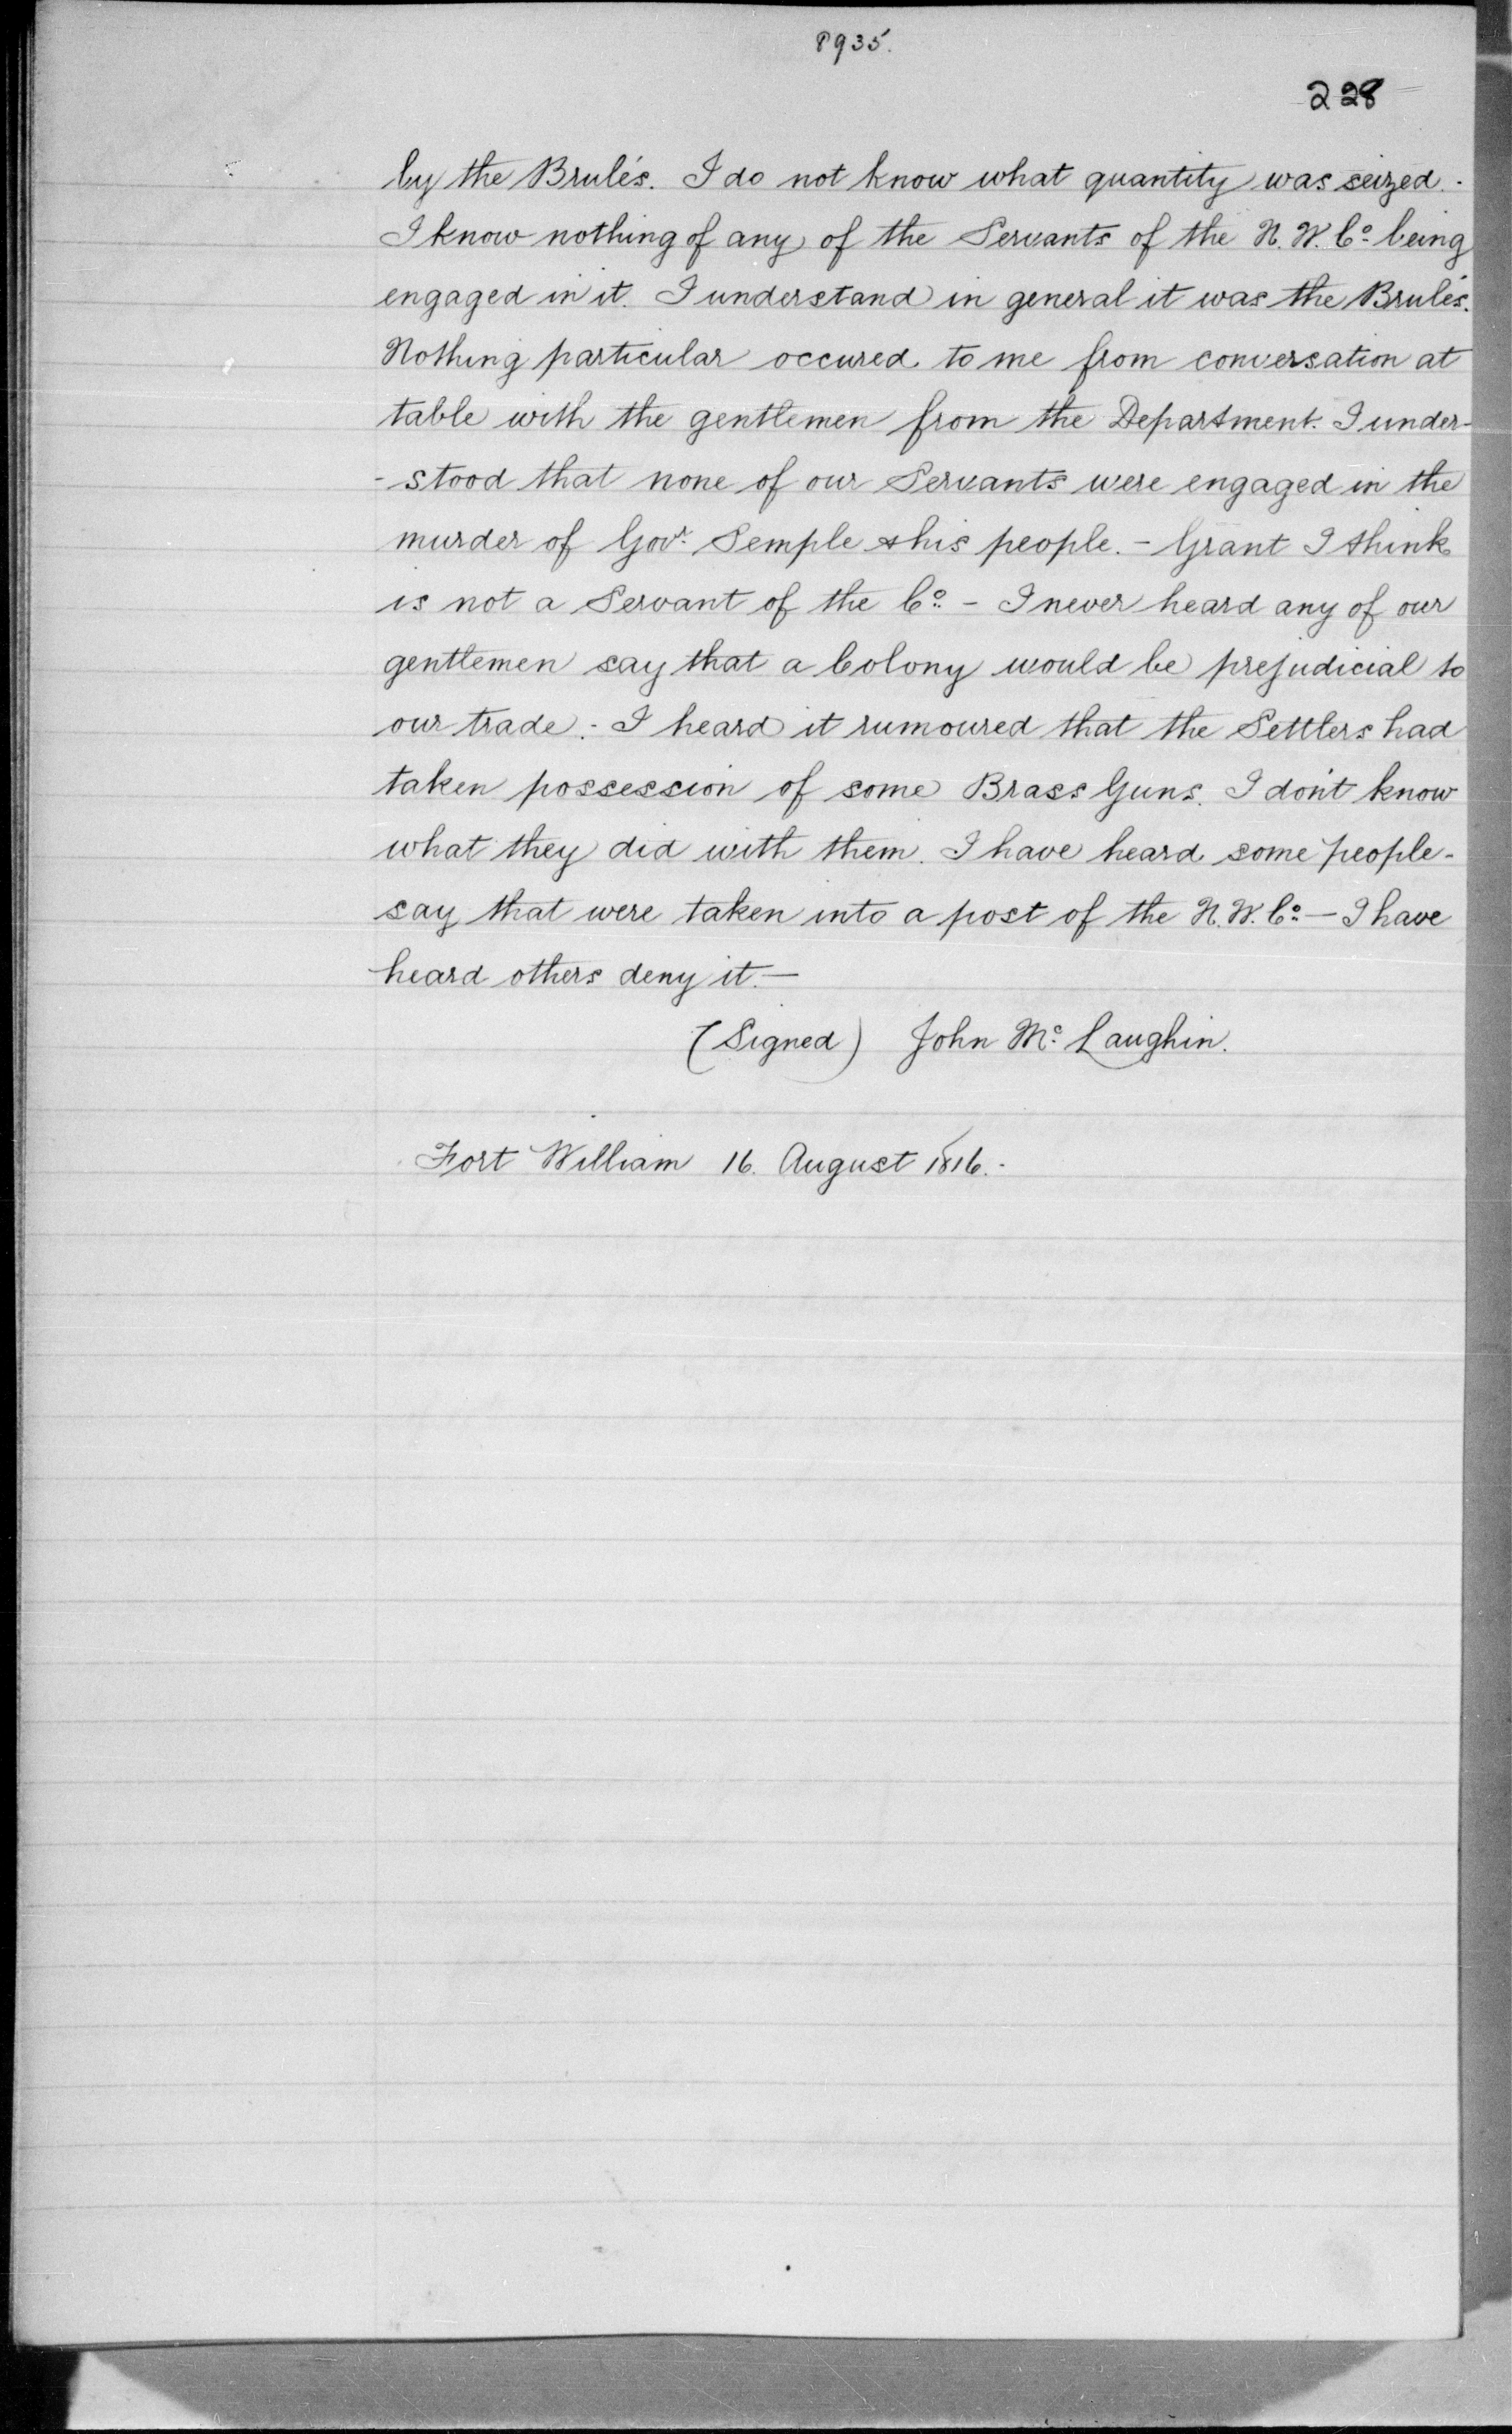 8935.
228
by the Brulés. I do not know what quantity was seized.-
I know nothing of any of the Servants of the N. W. Co. being
engaged in it. I understand in general it was the Brulés.
Nothing particular occured to me from conversation at
table with the gentlemen from the Department. I under-
-stood that none of our Servants were engaged in the
murder of Govr. Semple & his people. - Grant I think
is not a Servant of the Co. - I never heard any of our
gentlemen say that a Colony would be prejudicial to
our trade. - I heard it rumoured that the Settlers had
taken possession of some Brass Guns. I don't know
what they did with them. I have heard some people -
say that were taken into a post of the N. W. Co. — I have
heard others deny it. —
(Signed) John Mc. Laughin.
Fort William 16. August 1816. -